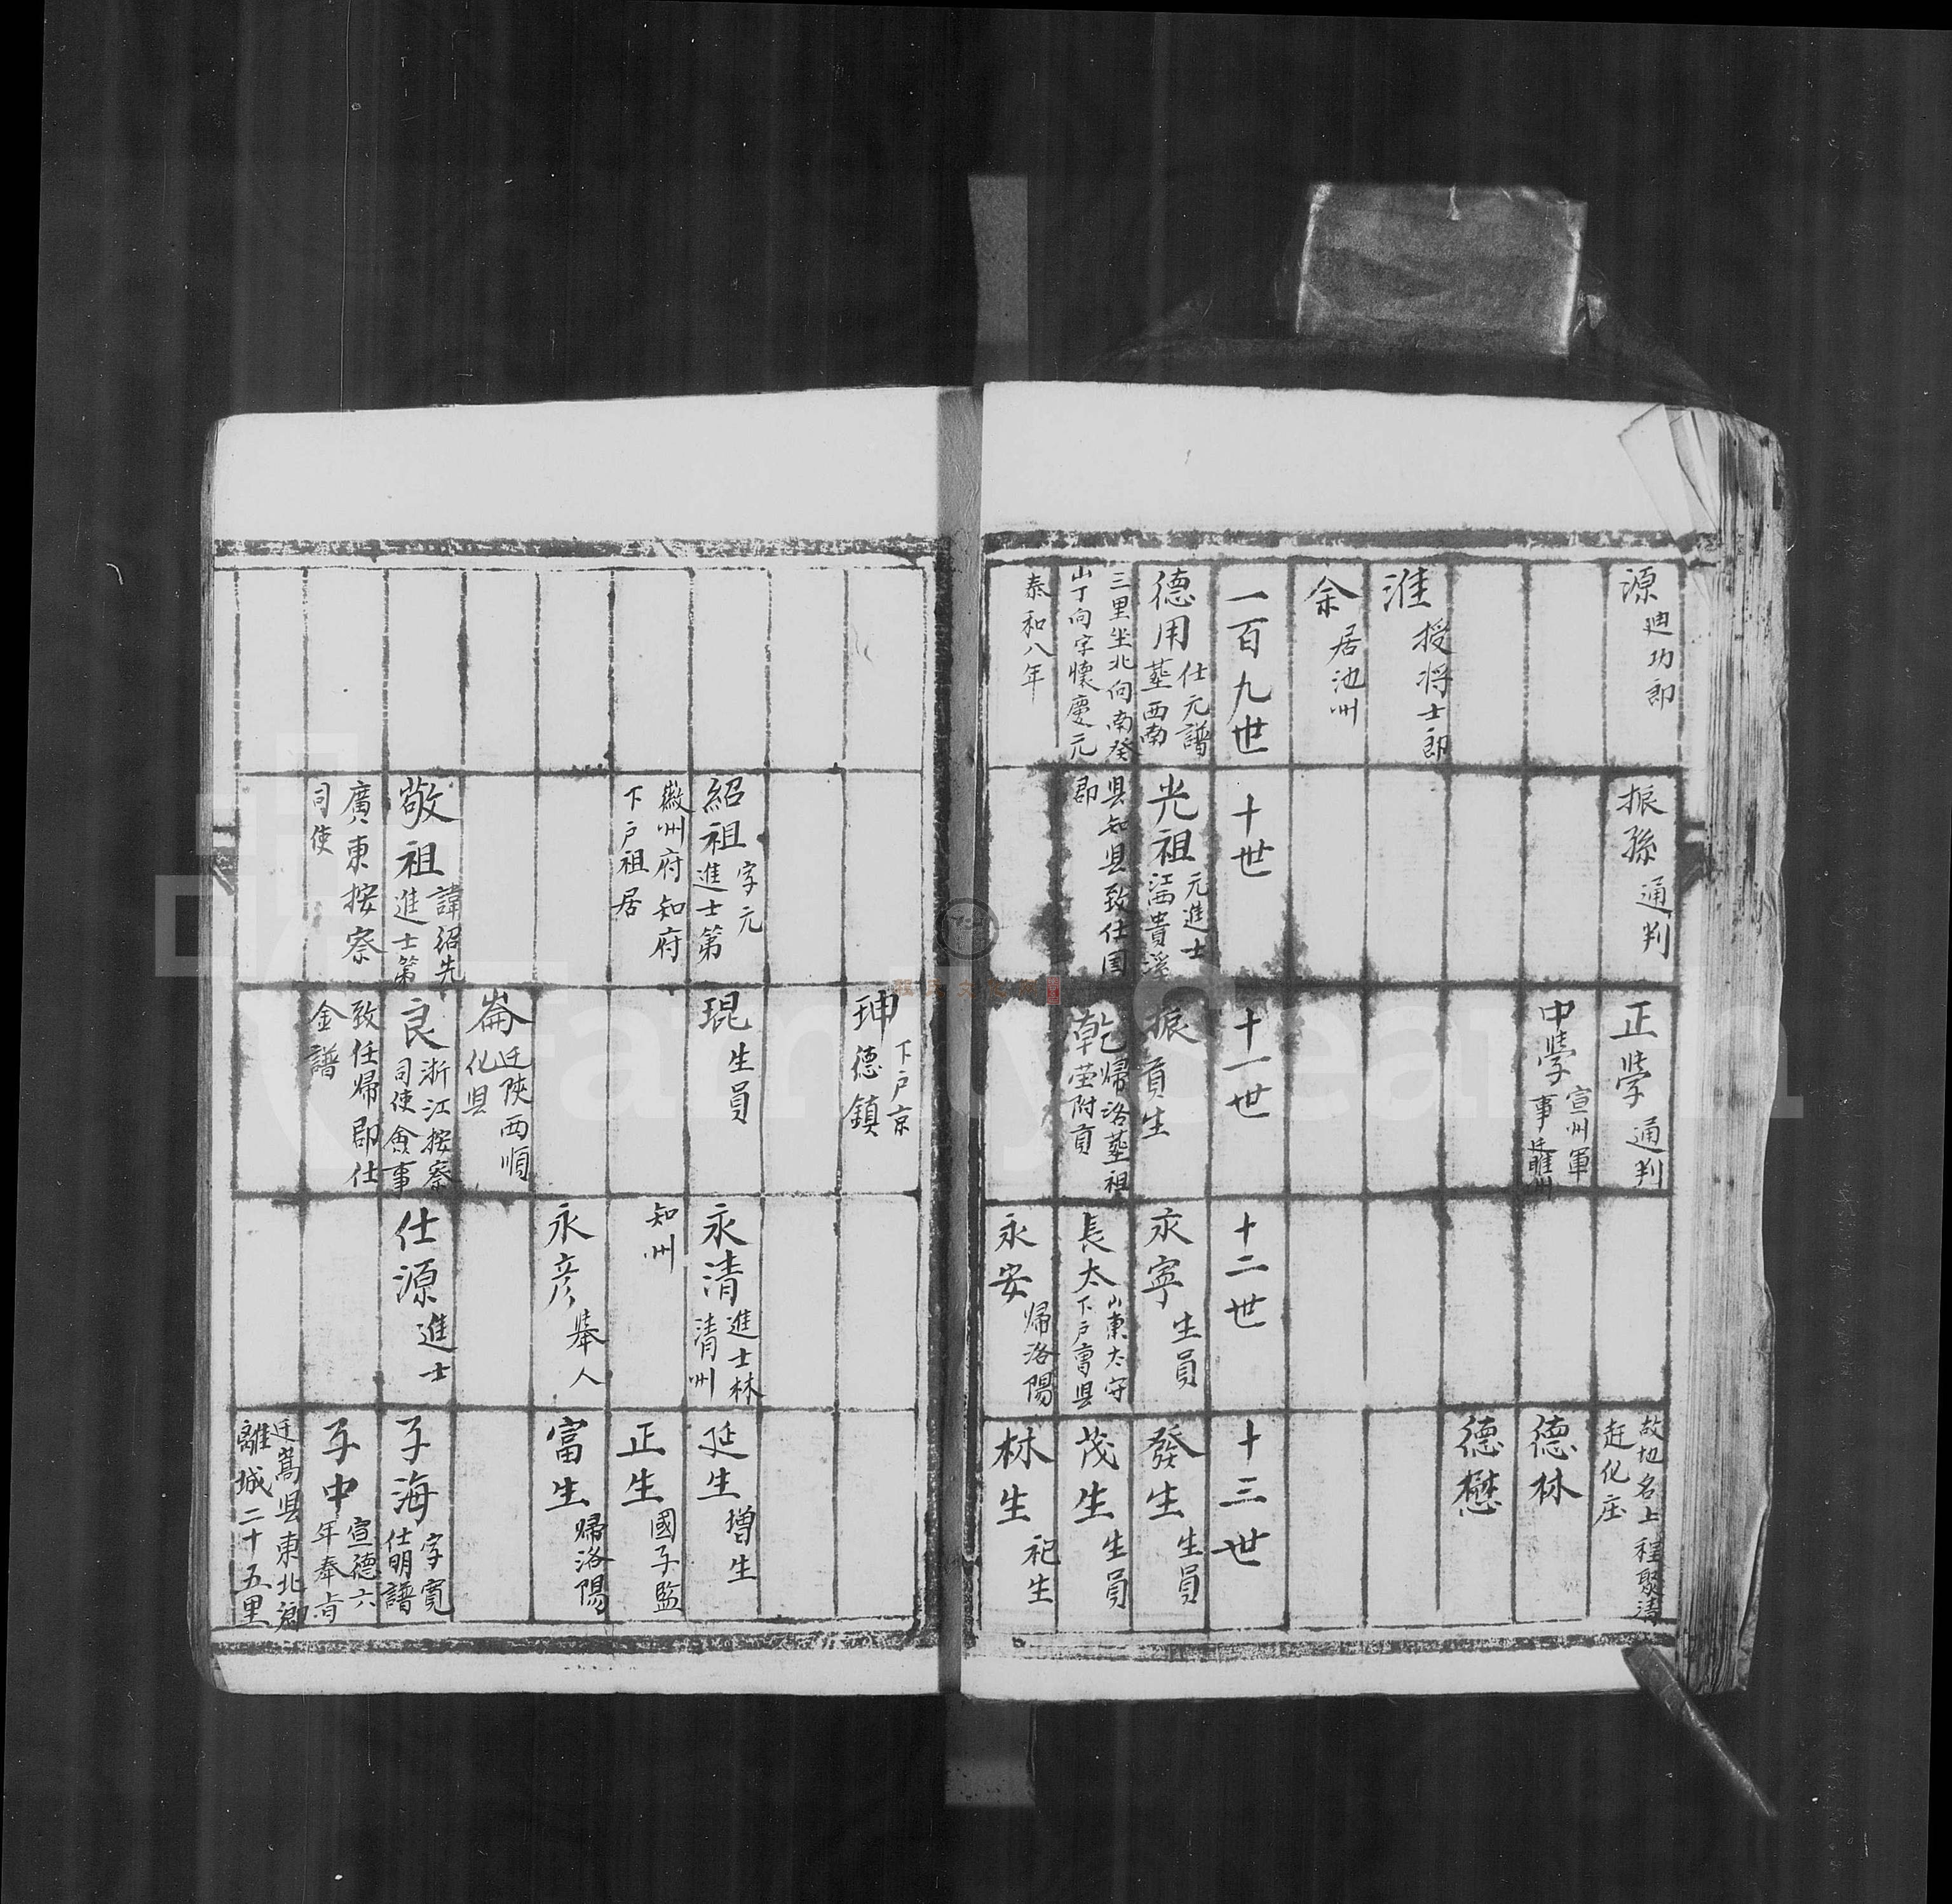 源 迪功郎
淮 授将士郎
余 居池州
振孫 通判
正學 通判
中學 宣州軍
事 迁睢州
故地名上程聚清
赶化庄
德林
德懋
一百九世
德用 仕元譜
墓西南
三里坐北向南癸
山丁向字懷慶元
泰和八年
十世
光祖 元進士
江西貴溪
县知县致仕国
郡
十一世
振 貢生
乾 帰洛墓祖
茔附貢
十二世
永寧 生員
長太 山東太守
下户曹县
永安 帰洛陽
十三世
發生 生員
茂生 生員
林生 祀生
紹祖 字元
進士第
徽州府知府
下户祖居
敬祖 諱紹先
進士第
廣東按察
司使
珅 下户京
德鎮
琨 生員
崙 迁陝西順
化县
良 浙江按察
司使僉事
致任帰郡仕
金譜
永清 進士林
清州
知州
永彦 舉人
仕源 進士
延生 增生
正生 國子監
富生 帰洛陽
子海 字寬
仕明譜
子中 宣德六
年奉旨
迁嵩县東北鄉
離城二十五里
FamilySearch